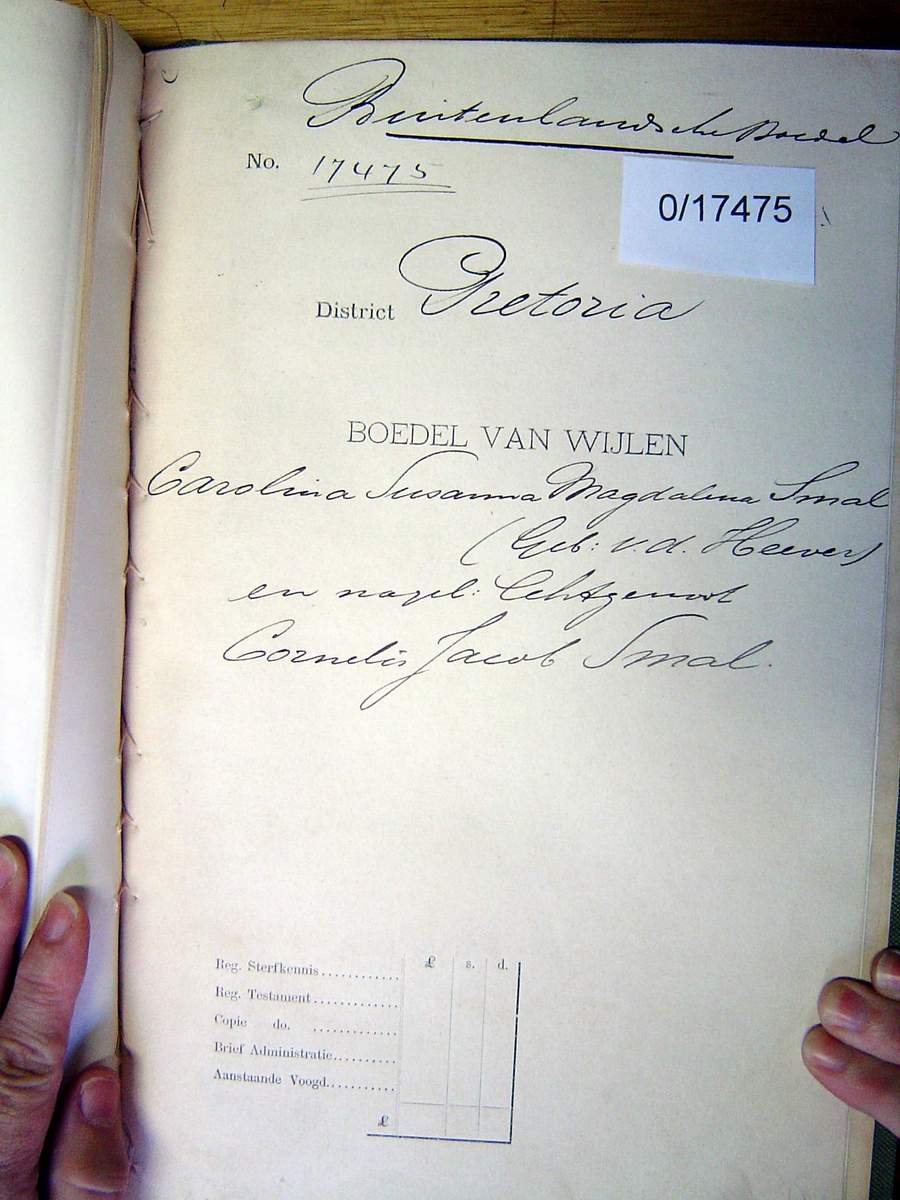 Buitenlandsche Boedel
No. 17475
0/17475
District Pretoria
BOEDEL VAN WIJLEN
Carolina Susanna Magdalena Smal
(Geb: v.d. Heever)
en nagel: Echtgenoot
Cornelis Jacob Smal.
£ s. d.
Reg. Sterfkennis............
Reg. Testament.............
Copie do. .............
Brief Administratie..........
Aanstaande Voogd...........
£